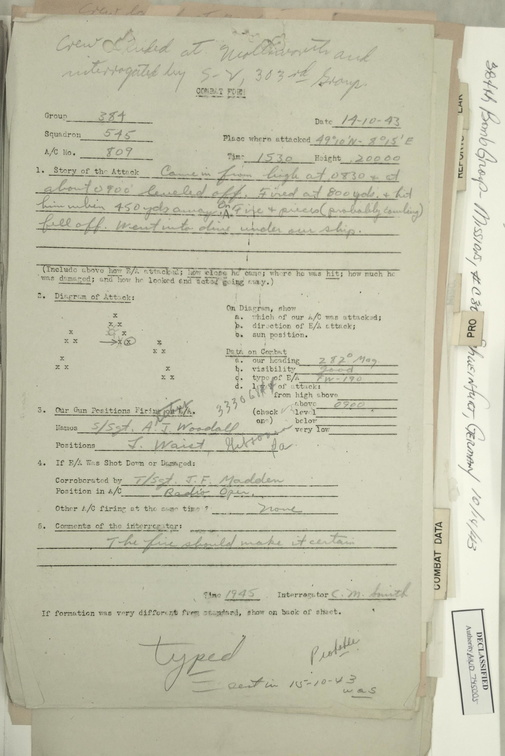 Crew landed at Molesworth and
interrogated by S-2, 303rd Group
COMBAT FORM
Group 384
Date 14-10-43
Squadron 545
Place where attacked 49°10'N- 8°15'E
A/C No. 809
Time 1530 Height 20000
1. Story of the Attack Came in from high at 0830 & at
about 0900 leveled off. Fired at 800 yds. & hit
him when 450 yds away. Fire & pieces (probably cowling)
fell off. Went into dive under our ship.
(Include above how E/A attacked; how close he came; where he was hit; how much he
was damaged; and how he looked and acted going away.)
2. Diagram of Attack:
On Diagram, show
a. which of our A/C was attacked;
b. direction of E/A attack;
c. sun position.
Data on Combat
a. our heading 282° Mag
b. visibility Good
c. type of E/A FW-190
d. level of attack:
from high above
above 0900
(check level
one) below
very low
33306144
3. Our Gun Positions Firing at E/A.
Names S/Sgt. A. J. Woodall
Positions L. Waist,
4. If E/A Was Shot Down or Damaged:
Corroborated by T/Sgt. J. F. Madden
Position in A/C Radio Oper.
Other A/C firing at the same time? none
5. Comments of the interrogator:
The fire should make it certain
Time 1945 Interrogator C. M. Smith
If formation was very different from standard, show on back of sheet.
typed
Probable
sent in 15-10-43
was
COMBAT DATA
PRO
REPORTS
384th Bomb Group - Mission, Schweinfurt, Germany 10/14/43
DECLASSIFIED
Authority NND 745005